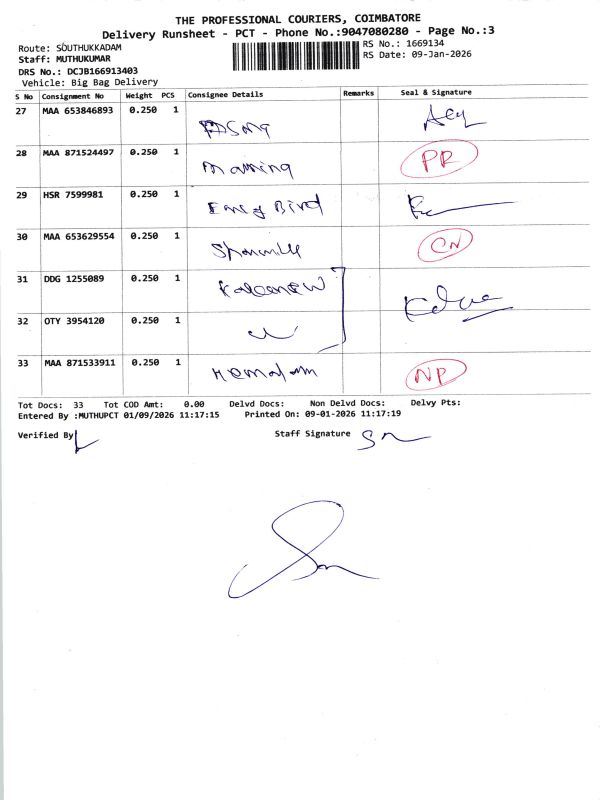 THE PROFESSIONAL COURIERS, COIMBATORE
Delivery Runsheet - PCT - Phone No.:9047080280 - Page No.:3
Route: SOUTHUKKADAM
RS No.: 1669134
Staff: MUTHUKUMAR
RS Date: 09-Jan-2026
DRS No.: DCJB166913403
Vehicle: Big Bag Delivery
S No Consignment No Weight PCS Consignee Details Remarks Seal & Signature
27 MAA 653846893 0.250 1
28 MAA 871524497 0.250 1 PR
29 HSR 7599981 0.250 1 Bird
30 MAA 653629554 0.250 1 CN
31 DDG 1255089 0.250 1
32 OTY 3954120 0.250 1
33 MAA 871533911 0.250 1 NP
Tot Docs: 33 Tot COD Amt: 0.00 Delvd Docs: Non Delvd Docs: Delvy Pts:
Entered By :MUTHUPCT 01/09/2026 11:17:15 Printed On: 09-01-2026 11:17:19
Verified By Staff Signature